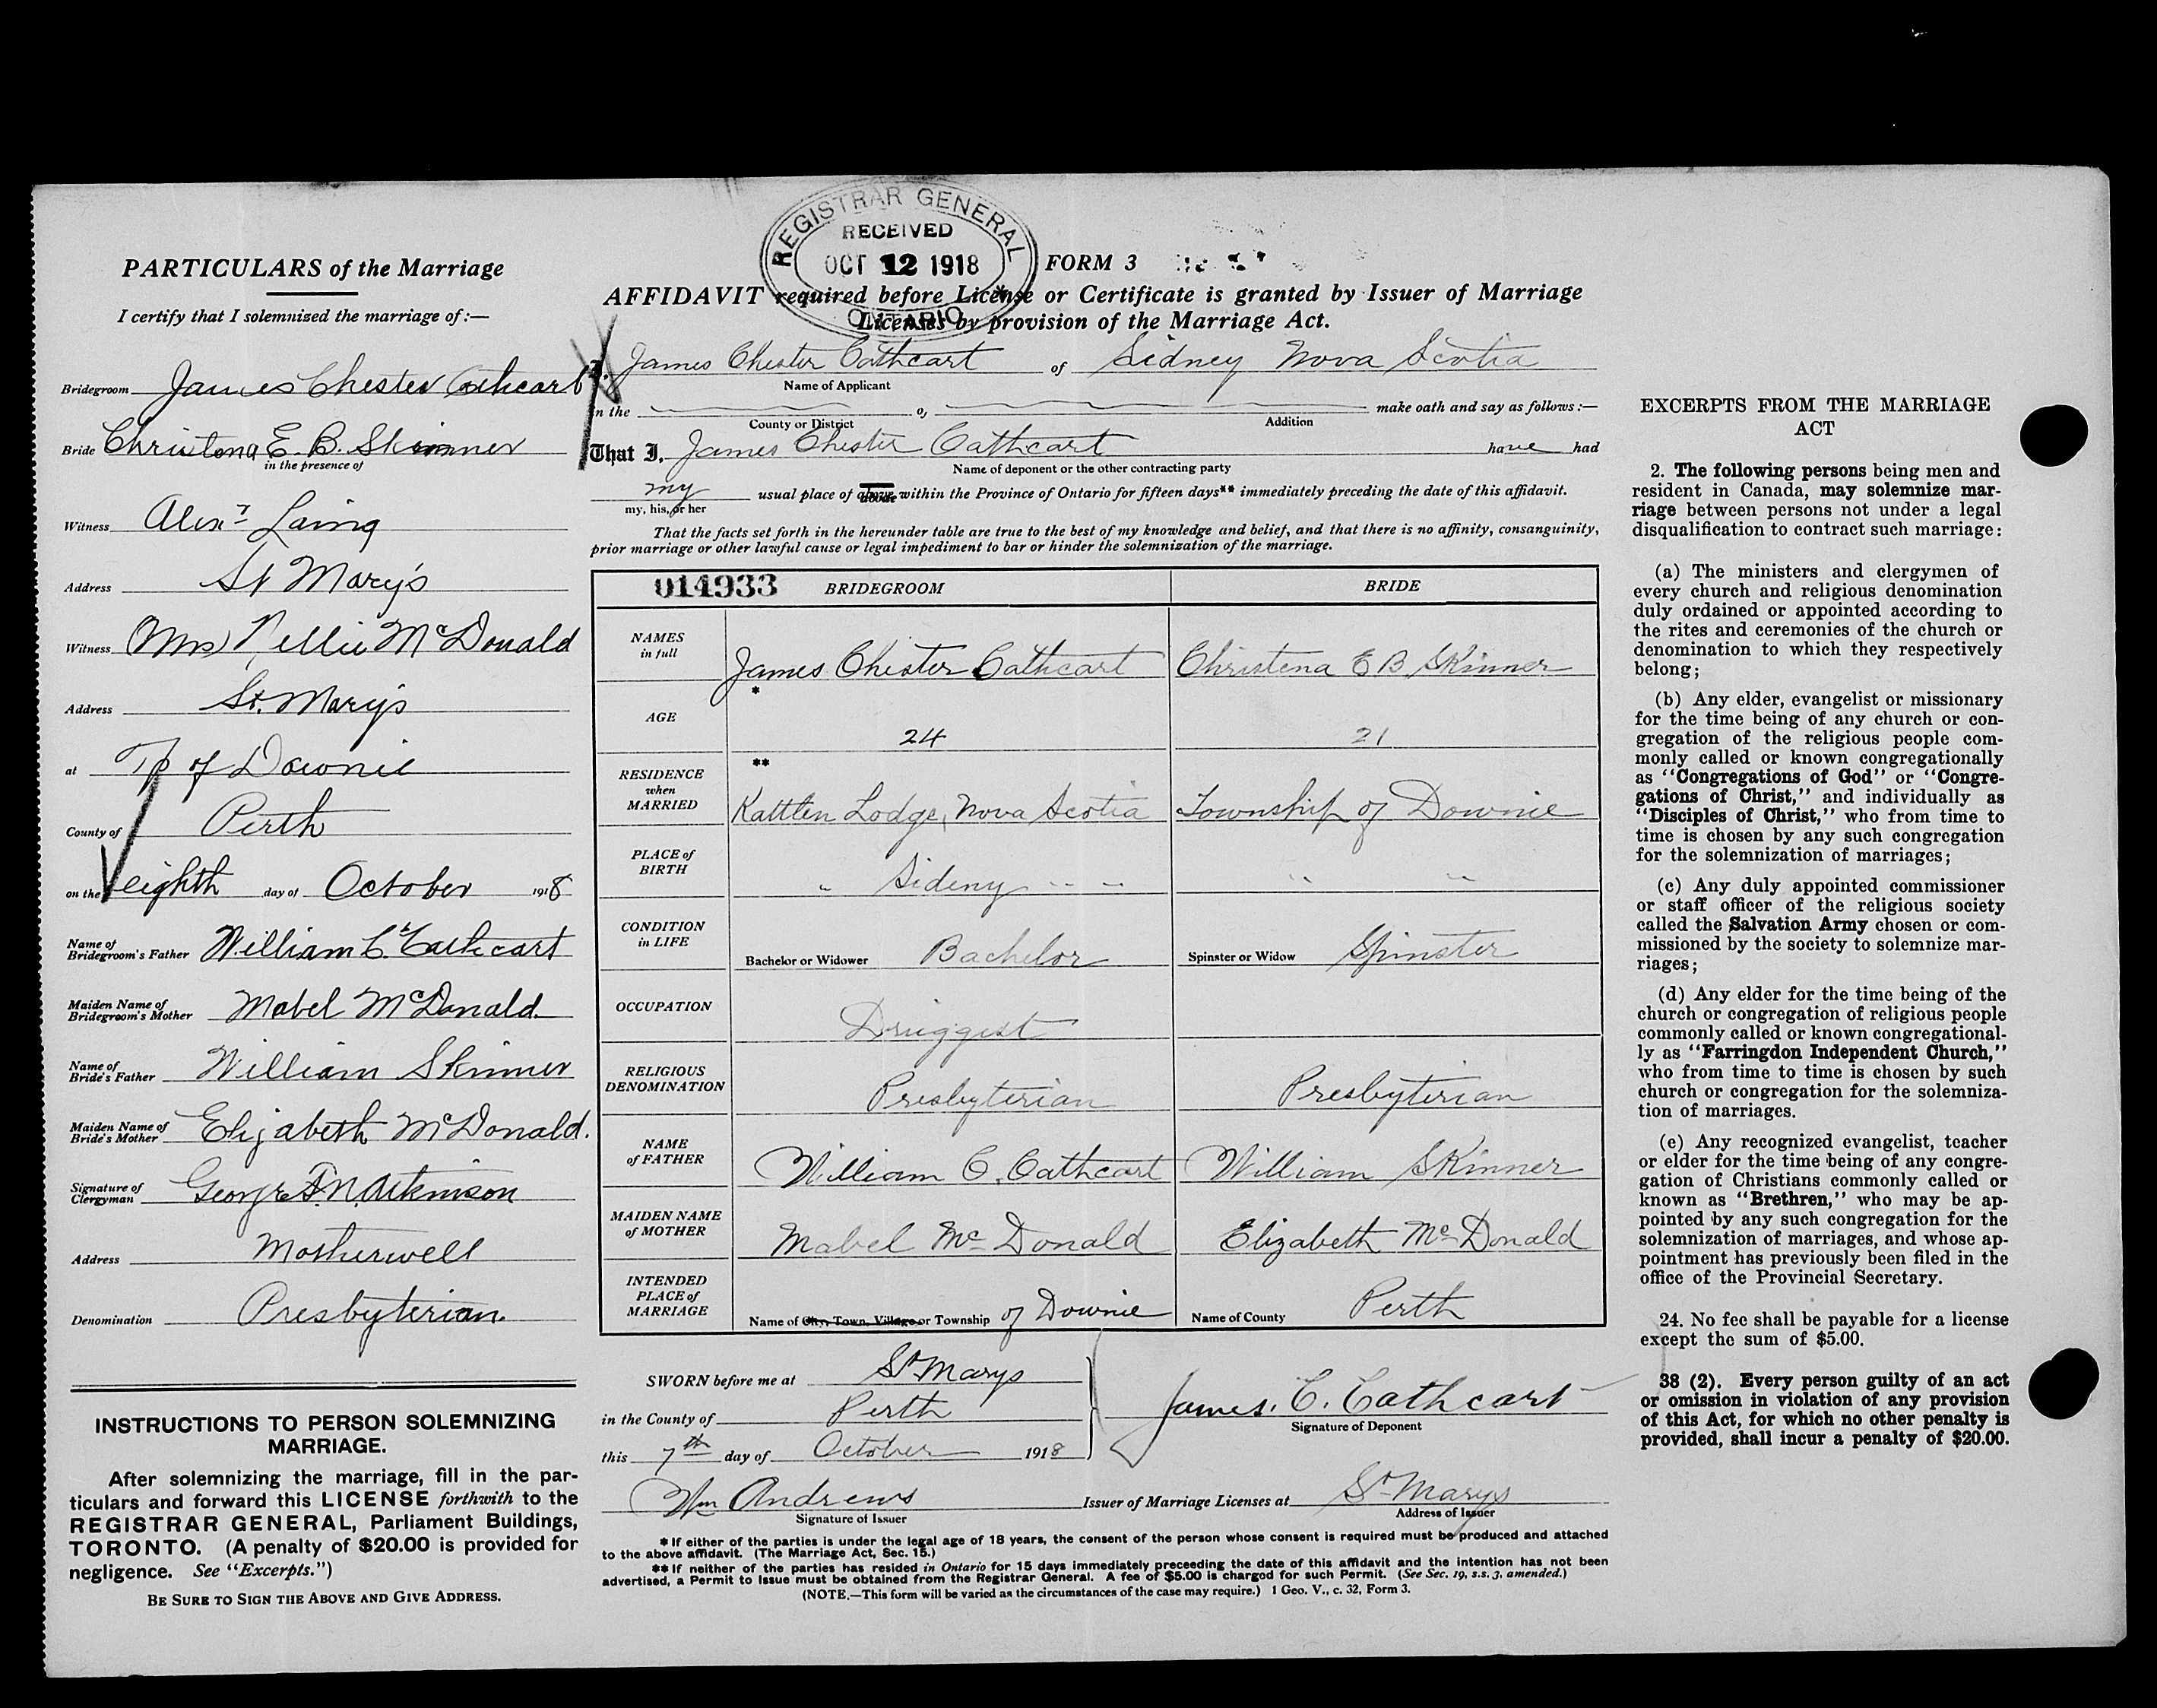 REGISTRAR GENERAL
RECEIVED
OCT 12 1918
ONTARIO
PARTICULARS of the Marriage
I certify that I solemnized the marriage of:—
Bridegroom James Chester Cathcart
Bride Christena E. B. Skinner
in the presence of
Witness Alexr Laing
Address St Mary's
Witness (Mrs) Nellie McDonald
Address St. Marys
at Tp of Downie
County of Perth
on the eighth day of October 1918
Name of Bridegroom's Father William C. Cathcart
Maiden Name of Bridegroom's Mother Mabel McDonald.
Name of Bride's Father William Skinner
Maiden Name of Bride's Mother Elizabeth McDonald.
Signature of Clergyman George F. N. Atkinson
Address Motherwell
Denomination Presbyterian.
INSTRUCTIONS TO PERSON SOLEMNIZING
MARRIAGE.
After solemnizing the marriage, fill in the par-
ticulars and forward this LICENSE forthwith to the
REGISTRAR GENERAL, Parliament Buildings,
TORONTO. (A penalty of $20.00 is provided for
negligence. See "Excerpts.")
BE SURE TO SIGN THE ABOVE AND GIVE ADDRESS.
FORM 3
AFFIDAVIT required before License or Certificate is granted by Issuer of Marriage
Licenses by provision of the Marriage Act.
I, James Chester Cathcart of Sidney Nova Scotia
Name of Applicant
in the of make oath and say as follows:—
County or District Addition
That I, James Chester Cathcart have had
Name of deponent or the other contracting party
my usual place of abode within the Province of Ontario for fifteen days** immediately preceding the date of this affidavit.
my, his, or her
That the facts set forth in the hereunder table are true to the best of my knowledge and belief, and that there is no affinity, consanguinity,
prior marriage or other lawful cause or legal impediment to bar or hinder the solemnization of the marriage.
014933 BRIDEGROOM BRIDE
NAMES in full James Chester Cathcart Christena E B Skinner
AGE * 24 21
RESIDENCE when MARRIED ** Kattlen Lodge, Nova Scotia Township of Downie
PLACE of BIRTH " Sideny " " " "
CONDITION in LIFE Bachelor or Widower Bachelor Spinster or Widow Spinster
OCCUPATION Druggest
RELIGIOUS DENOMINATION Presbyterian Presbyterian
NAME of FATHER William C. Cathcart William Skinner
MAIDEN NAME of MOTHER Mabel Mc Donald Elizabeth Mc Donald
INTENDED PLACE of MARRIAGE Name of City, Town, Village or Township of Downie Name of County Perth
SWORN before me at St Marys
in the County of Perth
this 7th day of October 1918
James. C. Cathcart
Signature of Deponent
Wm Andrews Issuer of Marriage Licenses at St Marys
Signature of Issuer Address of Issuer
* If either of the parties is under the legal age of 18 years, the consent of the person whose consent is required must be produced and attached
to the above affidavit. (The Marriage Act, Sec. 15.)
** If neither of the parties has resided in Ontario for 15 days immediately preceeding the date of this affidavit and the intention has not been
advertised, a Permit to Issue must be obtained from the Registrar General. A fee of $5.00 is charged for such Permit. (See Sec. 19, s.s. 3, amended.)
(NOTE.—This form will be varied as the circumstances of the case may require.) 1 Geo. V., c. 32, Form 3.
EXCERPTS FROM THE MARRIAGE
ACT
2. The following persons being men and
resident in Canada, may solemnize mar-
riage between persons not under a legal
disqualification to contract such marriage:
(a) The ministers and clergymen of
every church and religious denomination
duly ordained or appointed according to
the rites and ceremonies of the church or
denomination to which they respectively
belong;
(b) Any elder, evangelist or missionary
for the time being of any church or con-
gregation of the religious people com-
monly called or known congregationally
as "Congregations of God" or "Congre-
gations of Christ," and individually as
"Disciples of Christ," who from time to
time is chosen by any such congregation
for the solemnization of marriages;
(c) Any duly appointed commissioner
or staff officer of the religious society
called the Salvation Army chosen or com-
missioned by the society to solemnize mar-
riages;
(d) Any elder for the time being of the
church or congregation of religious people
commonly called or known congregational-
ly as "Farringdon Independent Church,"
who from time to time is chosen by such
church or congregation for the solemniza-
tion of marriages.
(e) Any recognized evangelist, teacher
or elder for the time being of any congre-
gation of Christians commonly called or
known as "Brethren," who may be ap-
pointed by any such congregation for the
solemnization of marriages, and whose ap-
pointment has previously been filed in the
office of the Provincial Secretary.
24. No fee shall be payable for a license
except the sum of $5.00.
38 (2). Every person guilty of an act
or omission in violation of any provision
of this Act, for which no other penalty is
provided, shall incur a penalty of $20.00.